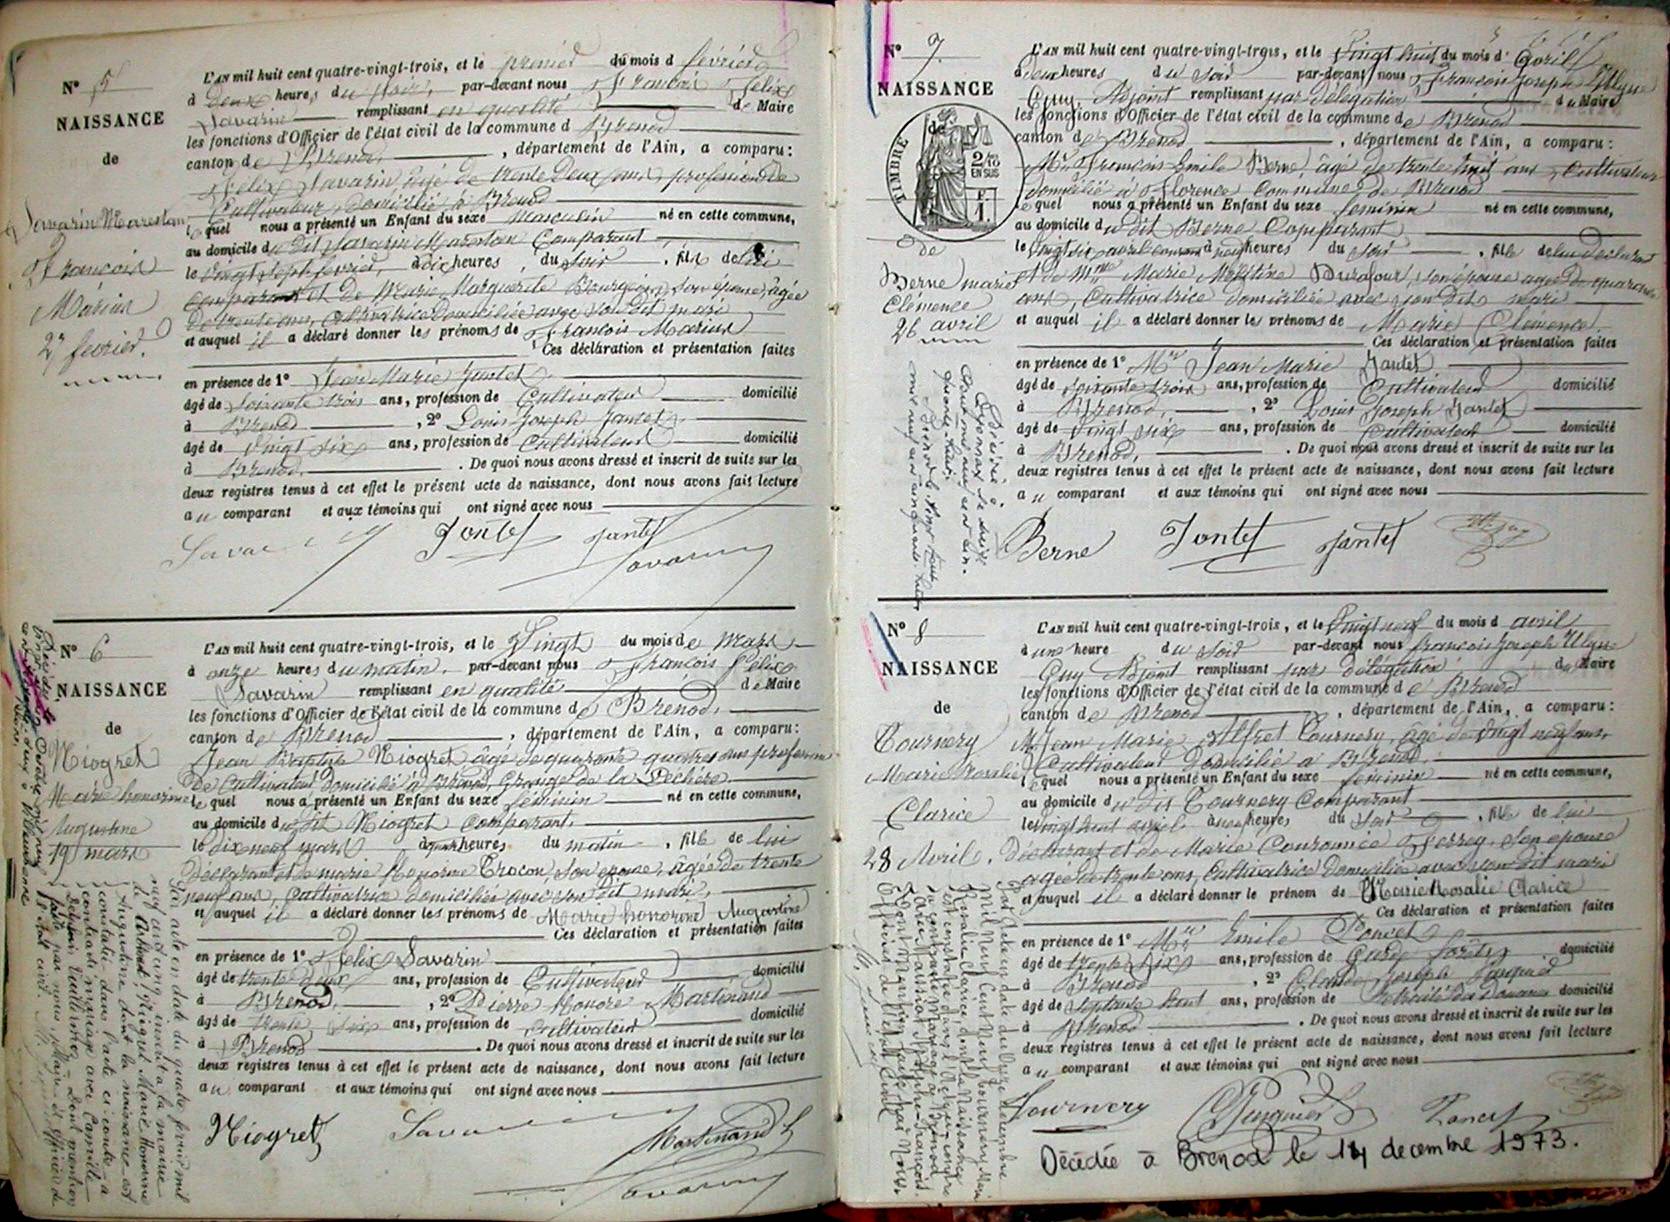 N° 5
NAISSANCE
de
Savarin Marestan
François
Marius
27 fevrier.
L'AN mil huit cent quatre-vingt-trois, et le premier du mois d février
à Deux heures du soir, par-devant nous François Félix
Savarin remplissant en qualité de Maire
les fonctions d'Officier de l'état civil de la commune d Brenod
canton de Brenod, département de l'Ain, a comparu:
Félix Savarin âgé de trente deux ans, profession de
Cultivateur, domicilié à Brenod
lequel nous a présenté un Enfant du sexe masculin né en cette commune,
au domicile du dit Savarin Marestan Comparant
le vingt sept fevrier, à dix heures, du soir, fils de lui
comparant et de Marie Marguerite Bourgeois, son épouse, âgée
de trente ans, cultivatrice domiciliée avec son dit mari
et auquel il a déclaré donner les prénoms de François Marius
Ces déclaration et présentation faites
en présence de 1° Jean Marie Jantet
âgé de soixante trois ans, profession de Cultivateur domicilié
à Brenod, 2° Louis Joseph Jantet
âgé de vingt six ans, profession de Cultivateur domicilié
à Brenod. De quoi nous avons dressé et inscrit de suite sur les
deux registres tenus à cet effet le présent acte de naissance, dont nous avons fait lecture
au comparant et aux témoins qui ont signé avec nous
Savarin Jantet Jantet
Savarin
N° 6
NAISSANCE
de
Niogret
Marie honorine
Augustine
19 mars
L'AN mil huit cent quatre-vingt-trois, et le Vingt du mois de mars
à onze heures du matin, par-devant nous François Félix
Savarin remplissant en qualité de Maire
les fonctions d'Officier de l'état civil de la commune de Brenod,
canton de Brenod, département de l'Ain, a comparu:
Jean Baptiste Niogret âgé de quarante quatre ans profession
de Cultivateur domicilié à Brenod, Grange de la Pechère
lequel nous a présenté un Enfant du sexe féminin né en cette commune,
au domicile du dit Niogret Comparant,
le dix neuf mars à heures du matin, fille de lui
Déclarant et de marie Honorine Trocon, son épouse, âgée de trente
neuf ans, Cultivatrice domiciliée avec son dit mari,
et auquel il a déclaré donner les prénoms de Marie honorine Augustine
Ces déclaration et présentation faites
en présence de 1° Félix Savarin
âgé de trente deux ans, profession de Cultivateur domicilié
à Brenod, 2° Pierre Honoré Martinand
âgé de trente six ans, profession de Cultivateur domicilié
à Brenod. De quoi nous avons dressé et inscrit de suite sur les
deux registres tenus à cet effet le présent acte de naissance, dont nous avons fait lecture
au comparant et aux témoins qui ont signé avec nous
Niogret Savarin Martinand
Savarin
Par acte en date du quatre fevrier mil
neuf cent inscrit à la mairie
Niogret Marie Honorine
Augustine dont la naissance est
constatée dans l'acte ci-contre a
contracté mariage avec Camille
Dont mention
faite par nous, Maire et officier de
l'Etat civil.
N° 7.
NAISSANCE
de
TIMBRE
2/10
EN SUS
F
1
de
Berne marie
Clémence
26 avril
Décédée à
Oyonnax le
L'AN mil huit cent quatre-vingt-trois, et le Vingt huit du mois d'Avril
à deux heures du soir par-devant nous François Joseph Ulysse
Guy, Adjoint remplissant par délégation du Maire
les fonctions d'Officier de l'état civil de la commune de Brenod
canton de Brenod, département de l'Ain, a comparu:
Mr François Emile Berne, âgé de trente huit ans, Cultivateur
domicilié à Florence Commune de Brenod
lequel nous a présenté un Enfant du sexe feminin né en cette commune,
au domicile du dit Berne Comparant
le vingt six avril courant à neuf heures du soir, fille de lui déclarant
et de Mme Marie Meltine Durafour, son épouse agée de quarante
ans, Cultivatrice domiciliée avec son dit mari
et auquel il a déclaré donner les prénoms de Marie Clémence.
Ces déclaration et présentation faites
en présence de 1° Mr Jean Marie Jantet
âgé de soixante trois ans, profession de Cultivateur domicilié
à Brenod, 2° Louis Joseph Jantet
âgé de Vingt six ans, profession de Cultivateur domicilié
à Brenod. De quoi nous avons dressé et inscrit de suite sur les
deux registres tenus à cet effet le présent acte de naissance, dont nous avons fait lecture
au comparant et aux témoins qui ont signé avec nous
Berne Jantet Jantet
N° 8
NAISSANCE
de
Tournery
Marie Rosalie
Clarice
28 Avril.
L'AN mil huit cent quatre-vingt-trois, et le Vingt neuf du mois d avril
à une heure du soir par-devant nous françois Joseph Ulysse
Guy Adjoint remplissant par délégation de Maire
les fonctions d'Officier de l'état civil de la commune de Brenod
canton de Brenod, département de l'Ain, a comparu:
M. Jean Marie Alfret Tournery, âgé de Vingt neuf ans,
Cultivateur Domicilié à Brenod
lequel nous a présenté un Enfant du sexe feminin né en cette commune,
au domicile du dit Tournery Comparant
le vingt huit avril à heures du soir, fille de lui
Déclarant et de Marie Couronnée Ferrez, Son épouse
agée de trente ans, Cultivatrice Domiciliée avec son dit mari
et auquel il a déclaré donner le prénom de Marie Rosalie Clarice
Ces déclaration et présentation faites
en présence de 1° Mr Emile Poncet
âgé de trente six ans, profession de Garde forêts domicilié
à Brenod, 2° Claude Joseph Pinguet
âgé de Septante huit ans, profession de Retraité des Douanes domicilié
à Brenod. De quoi nous avons dressé et inscrit de suite sur les
deux registres tenus à cet effet le présent acte de naissance, dont nous avons fait lecture
au comparant et aux témoins qui ont signé avec nous
Tournery Poncet
Décédée à Brenod le 14 decembre 1973.